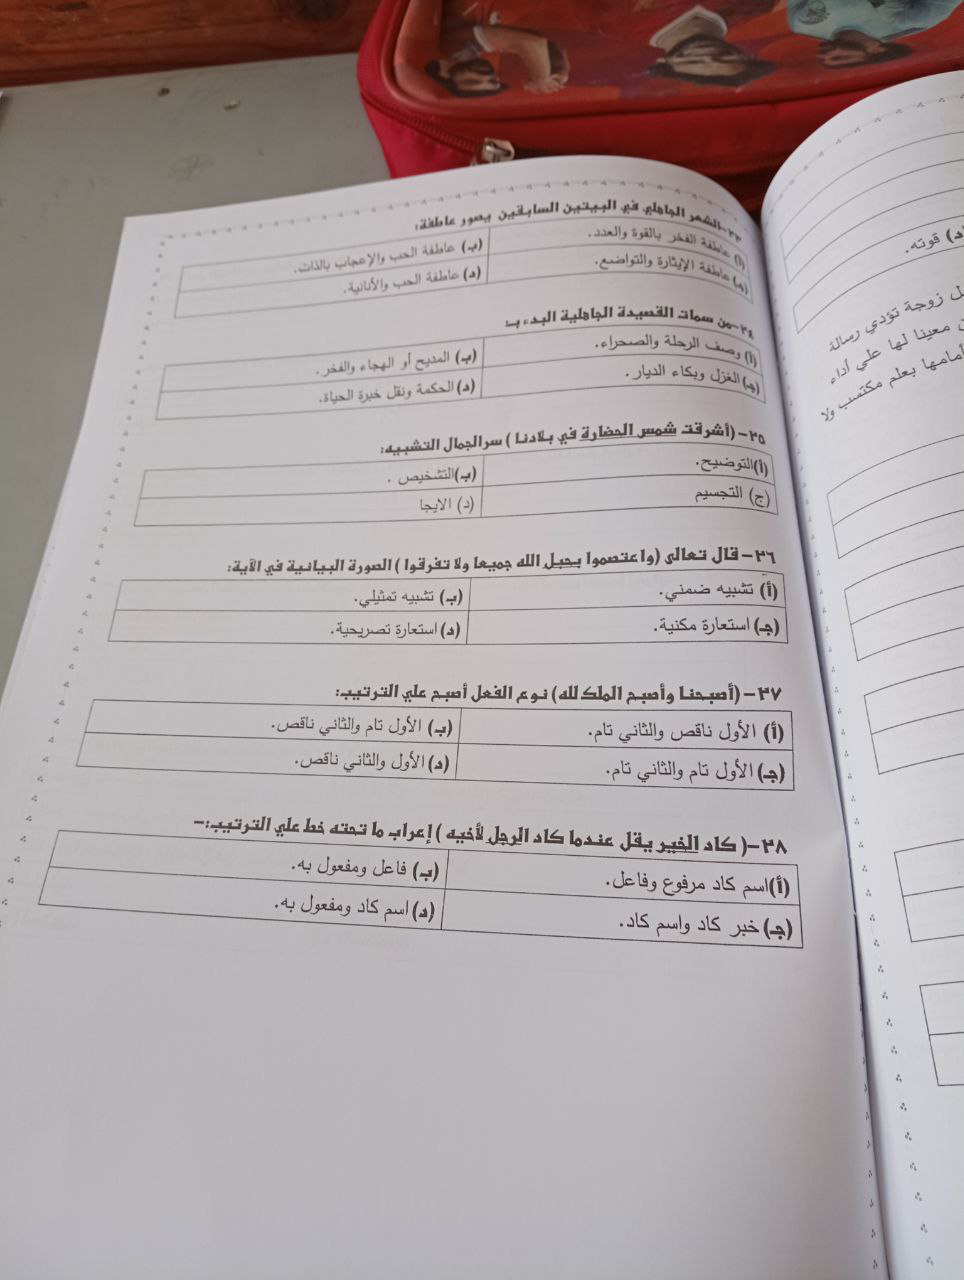 ٢٣-الشعر الجاهلي في البيتين السابقين يصور عاطفة:
(أ) عاطفة الفخر بالقوة والعدد.
(ب) عاطفة الحب والإعجاب بالذات.
(جـ) عاطفة الإيثارة والتواضع.
(د) عاطفة الحب والأنانية.
٢٤-من سمات القصيدة الجاهلية البدء بـ:
(أ) وصف الرحلة والصحراء.
(ب) المديح أو الهجاء والفخر.
(جـ) الغزل وبكاء الديار.
(د) الحكمة ونقل خبرة الحياة.
٢٥-(أشرقت شمس الحضارة في بلادنا) سر الجمال التشبيه:
(أ) التوضيح.
(ب) التشخيص.
(ج) التجسيم
(د) الايجا
٢٦-قال تعالى (واعتصموا بحبل الله جميعا ولا تفرقوا) الصورة البيانية في الآية:
(أ) تشبيه ضمني.
(ب) تشبيه تمثيلي.
(جـ) استعارة مكنية.
(د) استعارة تصريحية.
٢٧-(أصبحنا وأصبح الملك لله) نوع الفعل أصبح علي الترتيب:
(أ) الأول ناقص والثاني تام.
(ب) الأول تام والثاني ناقص.
(جـ) الأول تام والثاني تام.
(د) الأول والثاني ناقص.
٢٨-(كاد الخير يقل عندما كاد الرجل لأخيه) إعراب ما تحته خط علي الترتيب:-
(أ) اسم كاد مرفوع وفاعل.
(ب) فاعل ومفعول به.
(جـ) خبر كاد واسم كاد.
(د) اسم كاد ومفعول به.
(د) قوته.
زوجة تؤدي رسالة
معينا لها علي أداء
أمامها بعلم مكتسب ولا